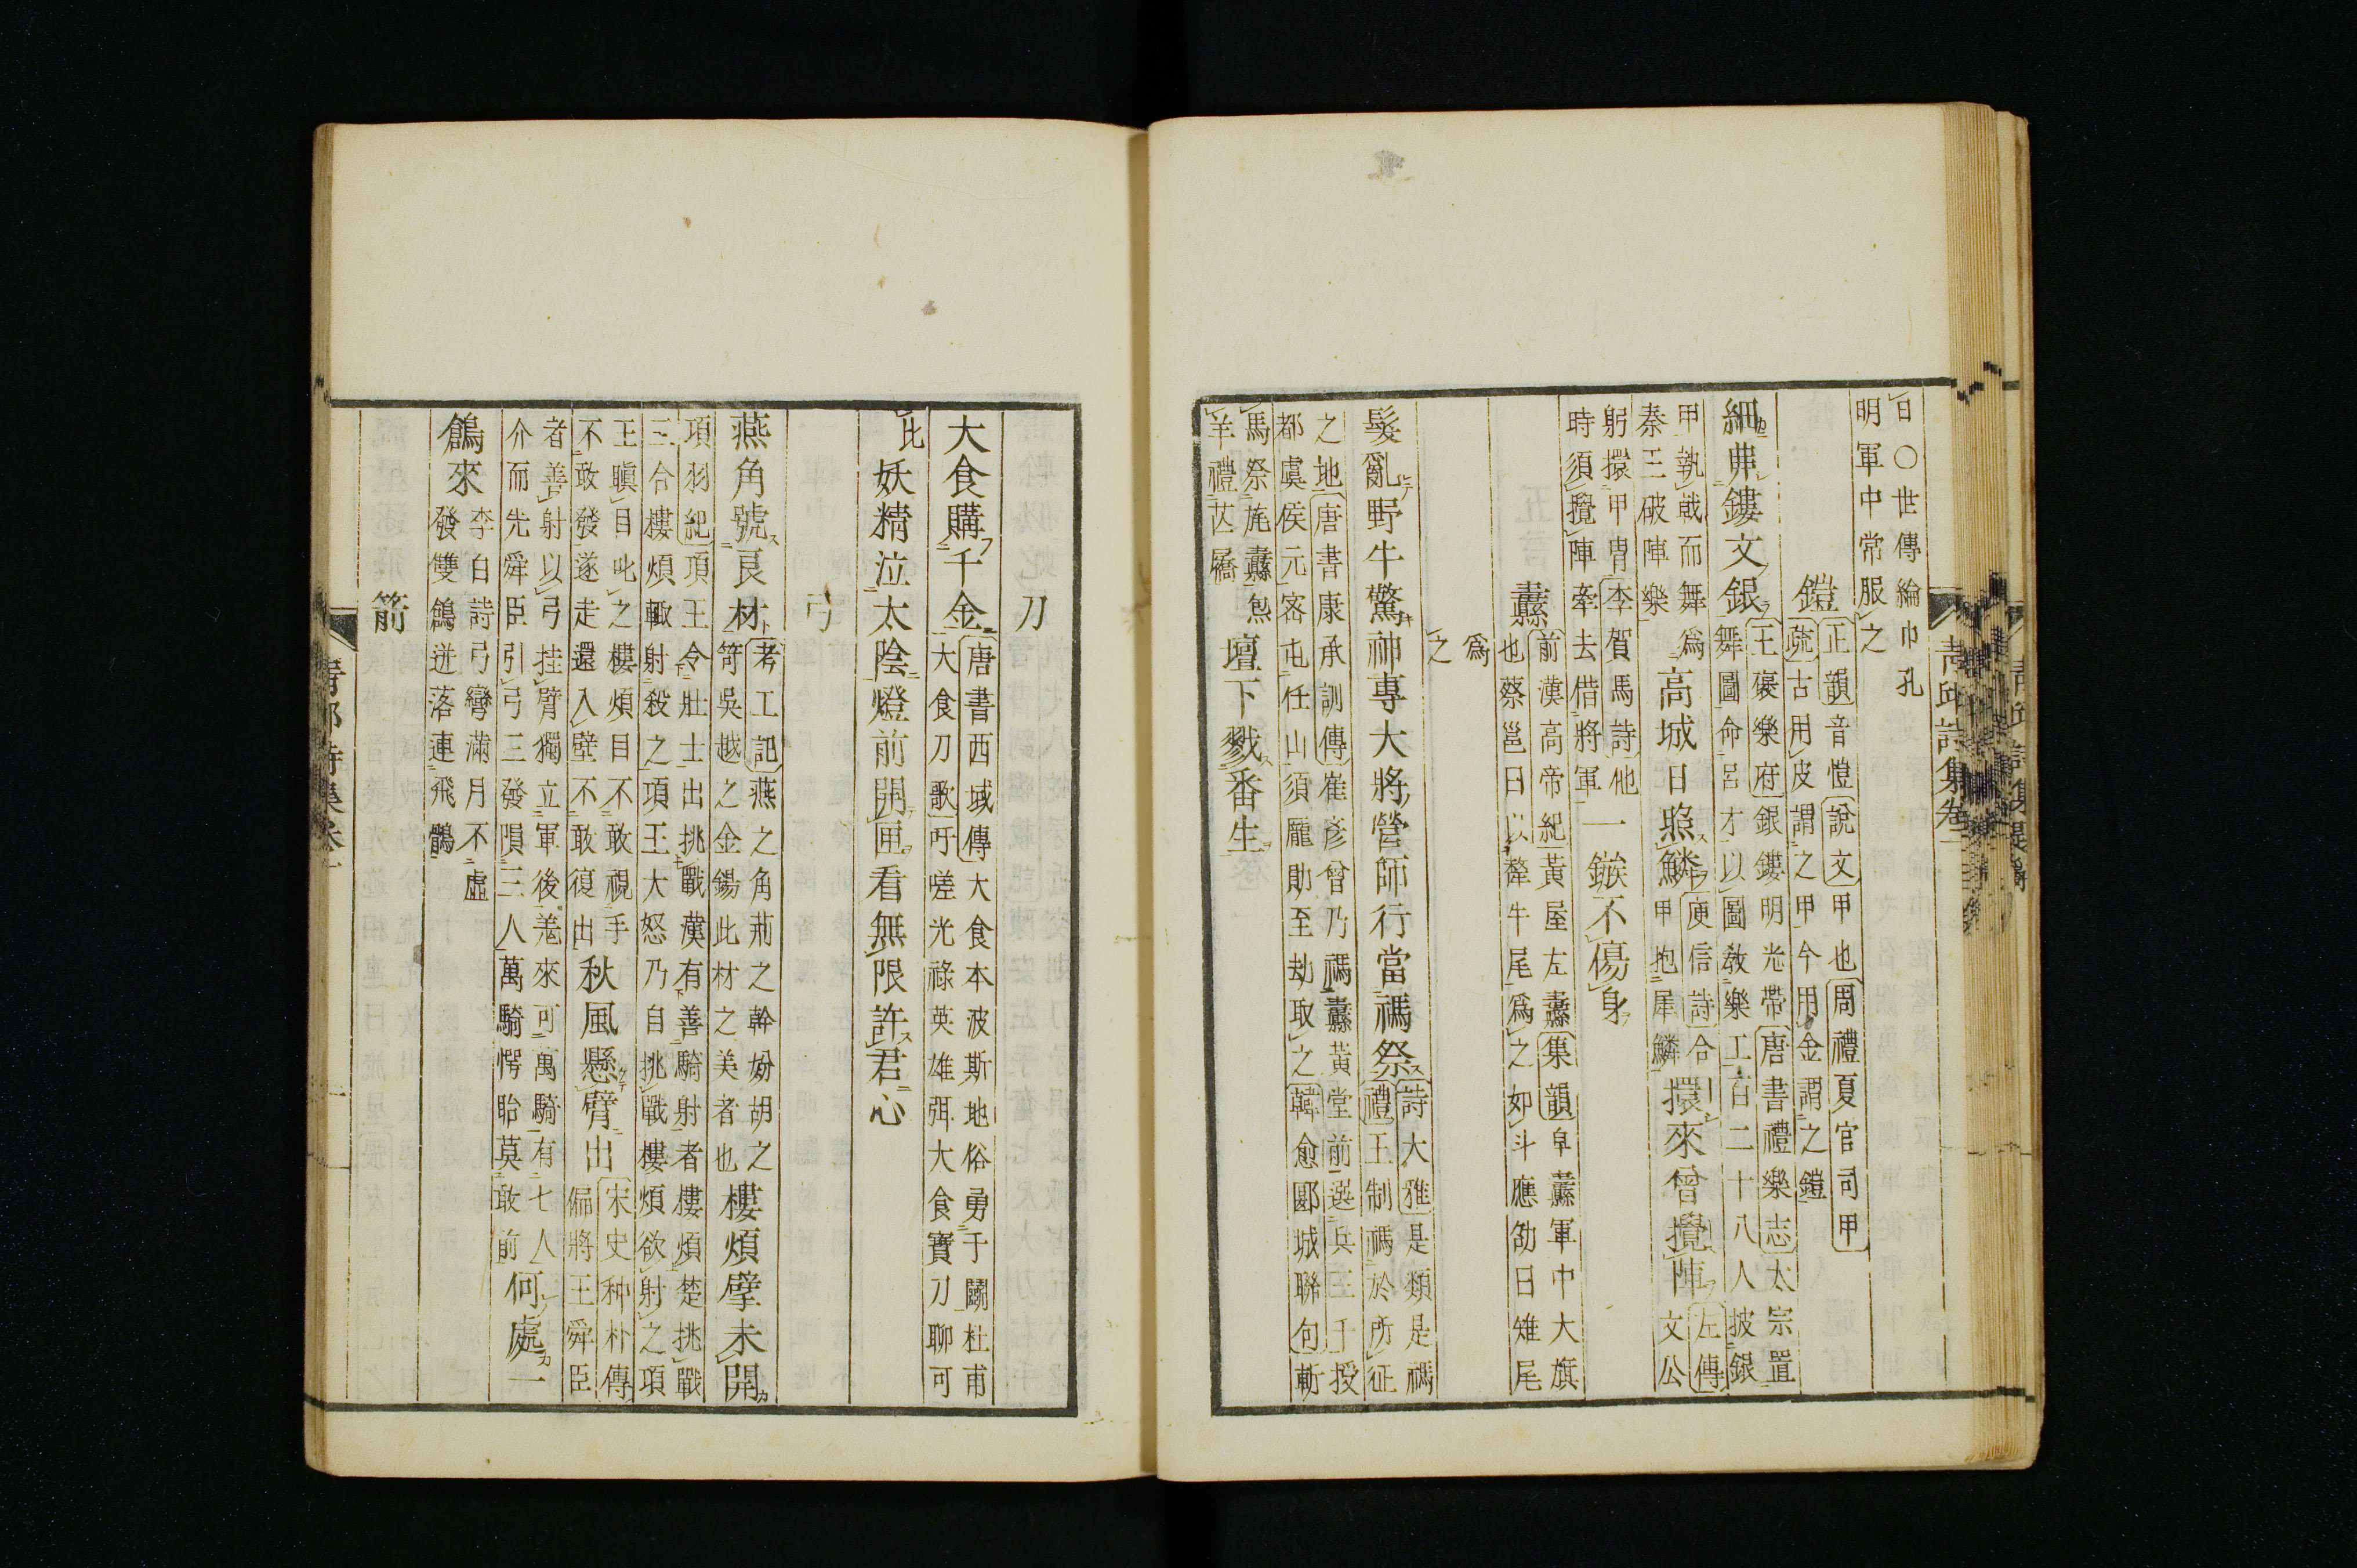 白〇世傳綸巾孔
明軍中常服之
鎧正韻音愷說文甲也周禮夏官司甲
疏古用皮謂之甲今用金謂之鎧
細
鏤文銀王褒樂府銀鏤明光帶唐書禮樂志太宗置
舞圖命呂才以圖教樂工百二十八人披銀
甲執戟而舞爲
秦王破陣樂
高城日照鱗庾信詩合
甲抱犀鱗
擐來曾攪陣左傳
文公
躬擐甲冑李賀馬詩他
時須攪陣牽去借將軍
一鏃不傷身
纛前漢高帝紀黃屋左纛集韻皁纛軍中大旗
也蔡邕曰以犛牛尾爲之如斗應劭曰雉尾
爲
之
髮亂野牛驚神專大將營師行當禡祭詩大雅是類是禡
禮王制禡於所征
之地唐書康承訓傳崔彥曾乃禡纛黃堂前選兵三千授
都虞侯元密屯任山須龐勛至劫取之韓愈郾城聯句斬
馬祭旄纛炰
羊禮芒屩
壇下戮番生
刀
大食購千金唐書西域傳大食本波斯地俗勇于鬭杜甫
大食刀歌吁嗟光祿英雄弭大食寶刀聊可
比
妖精泣太陰燈前開匣看無限許君心
弓
燕角號良材考工記燕之角荊之幹妢胡之
笴吳越之金錫此材之美者也
樓煩擘未開
項羽紀項王令壯士出挑戰漢有善騎射者樓煩楚挑戰
三合樓煩輙射殺之項王大怒乃自挑戰樓煩欲射之項
王瞋目叱之樓煩目不敢視手
不敢發遂走還入壁不敢復出
秋風懸臂出宋史种朴傳
偏將王舜臣
者善射以弓挂臂獨立軍後羌來可萬騎有七人
介而先舜臣引弓三發隕三人萬騎愕眙莫敢前
何處一
鶬來李白詩弓彎滿月不虛
發雙鶬迸落連飛鶻
箭
青邱詩集卷一